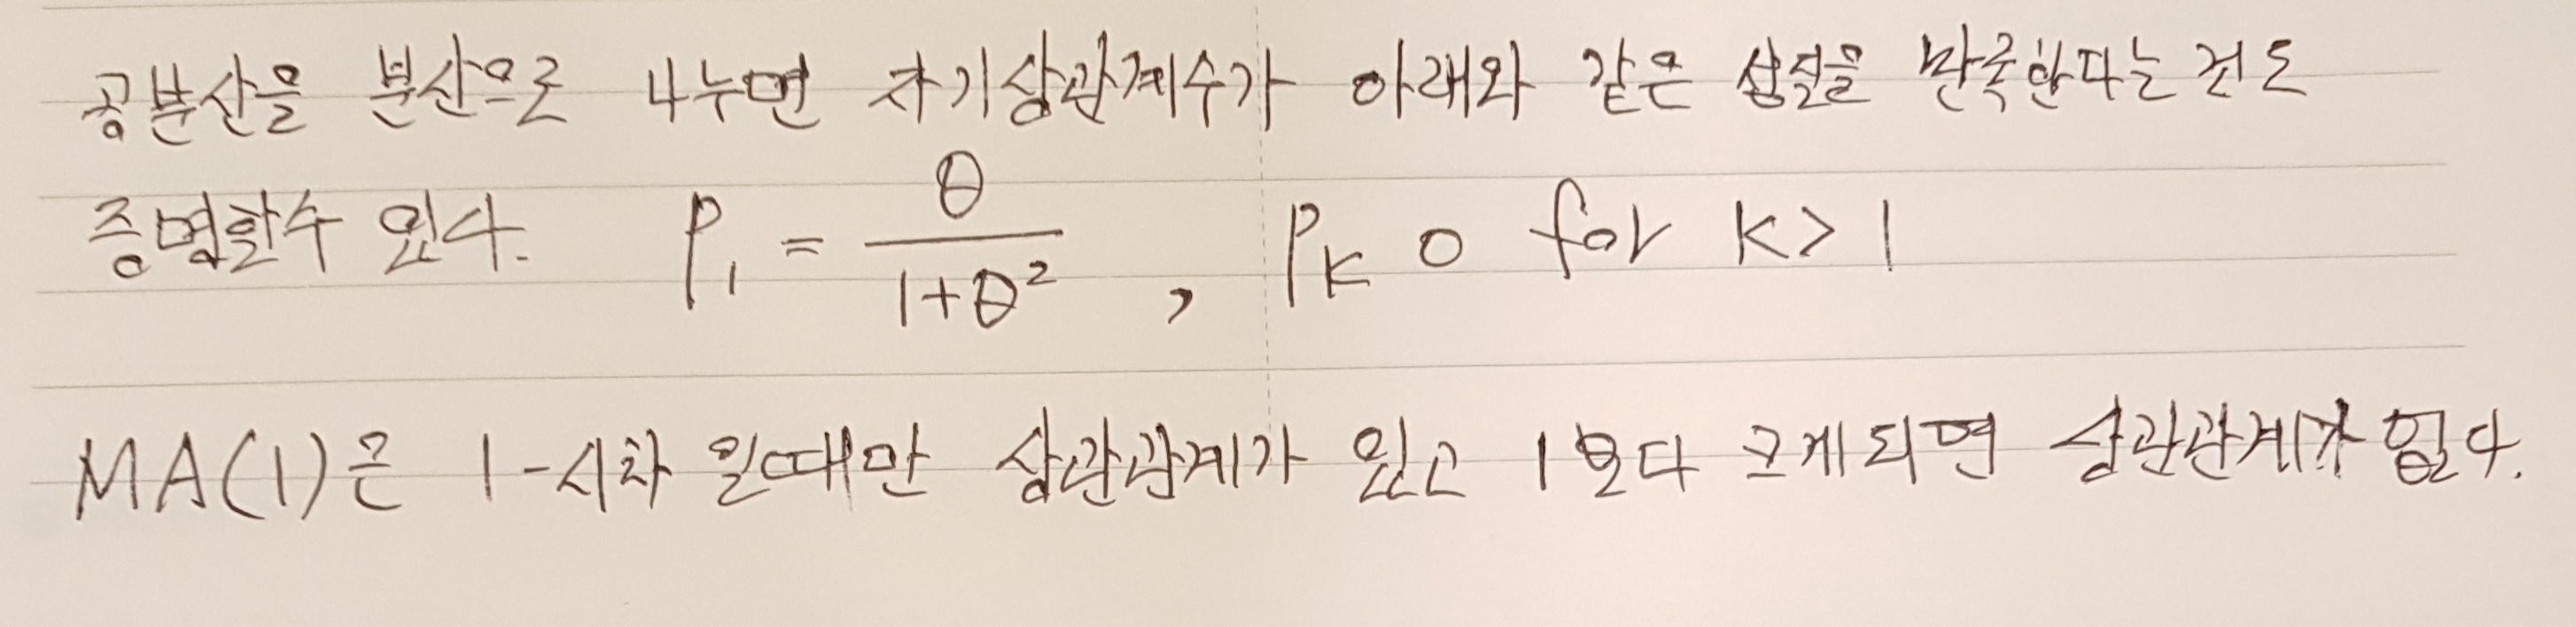 공분산을 분산으로 나누면 자기상관계수가 아래와 같은 성질을 만족한다는 것도
증명할수 있다. ρ₁ = θ / (1+θ²) , ρₖ 0 for k > 1
MA(1)은 1-시차 일때만 상관관계가 있고 1보다 크게되면 상관관계가 없다.